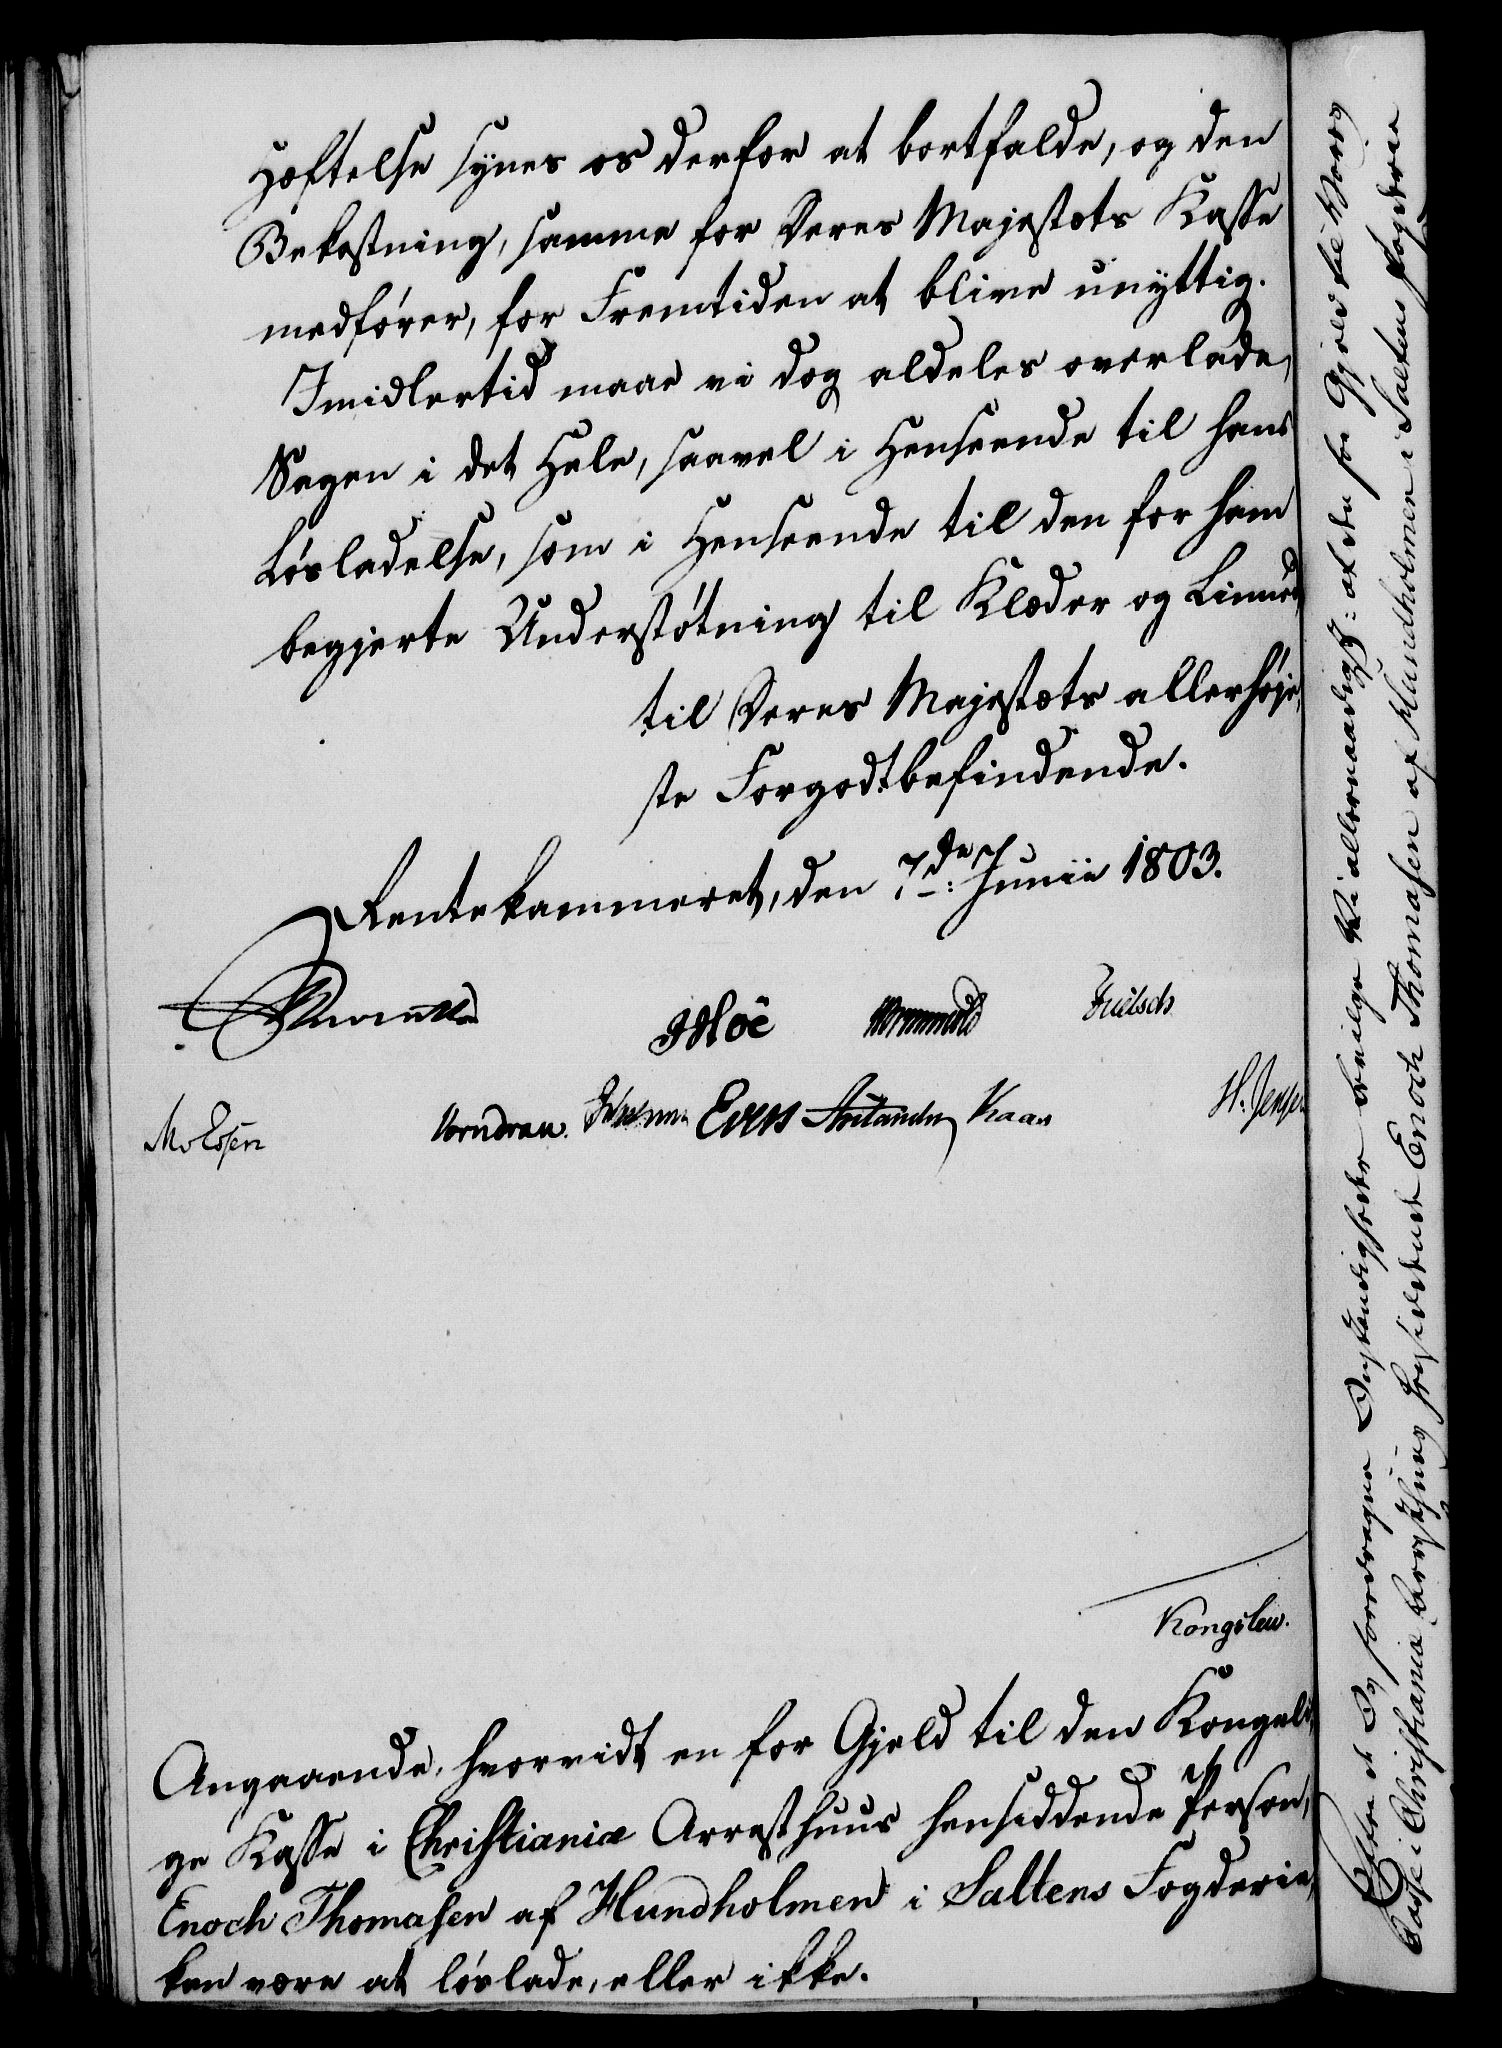 Hæftelse synes os derfor at bortfalde, og den
Bekostning, samme for Deres Majestæts Kasse
medfører, for Fremtiden at blive unyttig.
Imidlertid maae vi dog aldeles overlade,
Sagen i det Hele, saavel i Henseende til hans
Løsladelse, som i Henseende til den for ham
begjerte Understøtning til Klæder og Linned
til Deres Majestæts allerhøje,
ste Forgodtbefindende.
Rentekammeret, den 7de: Junii 1803.
Moe Wormwold Fritsch
Vorndran Evers Kaas H. Jensen
Kongslew.
Angaaende, hvorvidt en for Gjeld til den Kongeli,
ge Kasse i Christianiæ Arresthuus hensiddende Person,
Enoch Thomasen af Hundholmen i Saltens Fogderie,
kan være at løslade, eller ikke.
Efter de Os foredragne Omstændigheder bevilge Vi allernaadigst: at den for Gjeld til Vores
Casse i Christianiæ Arresthuus hensiddende Enoch Thomasen af Hundholmen i Saltens Fogderie